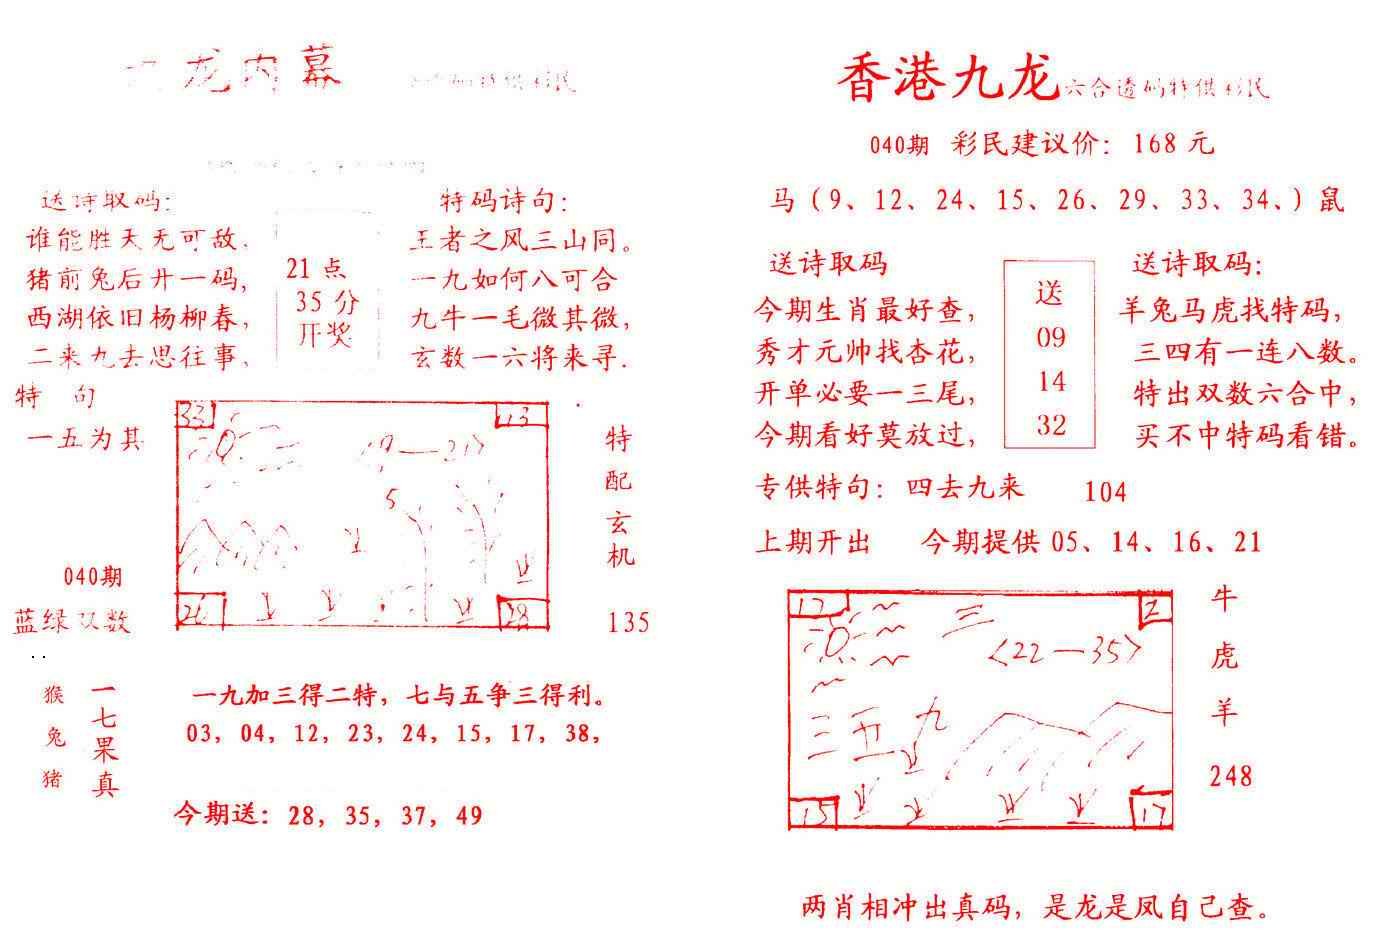 九龙内幕
码特供彩民
送诗取码:
谁能胜天无可敌,
猪前兔后开一码,
西湖依旧杨柳春,
二来九去思往事,
21点
35分
开奖
特码诗句:
王者之风三山同。
一九如何八可合
九牛一毛微其微,
玄数一六将来寻.
特 句
一五为其
040期
蓝绿双数
33
13
5
26
28
特配玄机
135
猴兔猪
一七果真
一九加三得二特，七与五争三得利。
03, 04, 12, 23, 24, 15, 17, 38,
今期送: 28, 35, 37, 49
香港九龙六合透码特供彩民
040期 彩民建议价: 168元
马（9、12、24、15、26、29、33、34、）鼠
送诗取码
今期生肖最好查,
秀才元帅找杏花,
开单必要一三尾,
今期看好莫放过,
送
09
14
32
送诗取码:
羊兔马虎找特码,
三四有一连八数。
特出双数六合中,
买不中特码看错。
专供特句: 四去九来 104
上期开出 今期提供 05、14、16、21
17
2
三
<22—35>
三五九
15
17
牛虎羊
248
两肖相冲出真码, 是龙是凤自己查。